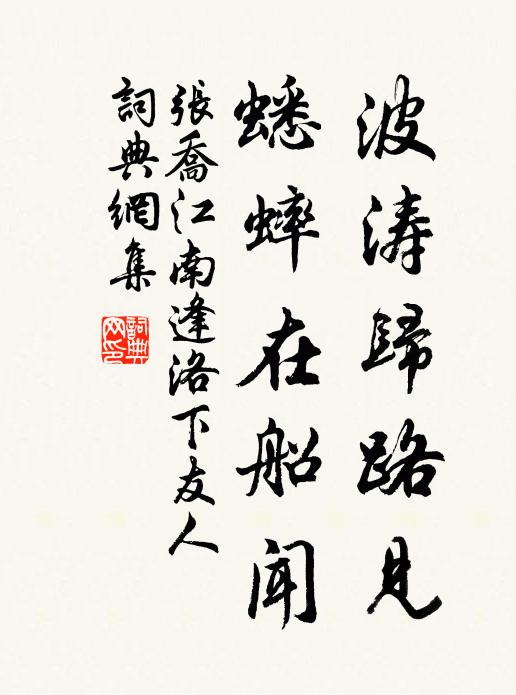 波涛歸路見
蟋蟀在船聞
張喬江南逢洛下友人
詞典網集
詞典网印